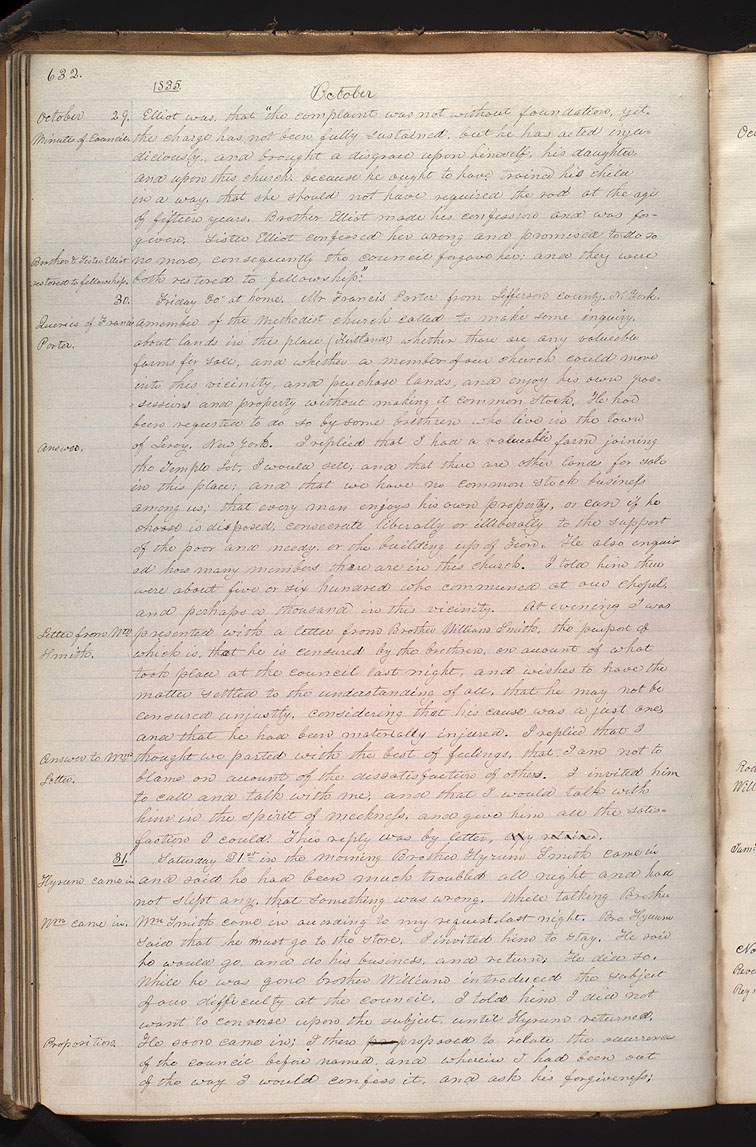 632.
1835
October
October 29. Elliot was, that "the complaint was not without foundation, yet,
Minutes of Council. the charge has not been fully sustained, but he has acted inju-
diciously, and brought a disgrace upon himself, his daughter
and upon this church, because he ought to have trained his child
in a way, that she should not have required the rod at the age
of fifteen years. Brother Elliot made his confession and was for-
given, Sister Elliot confessed her wrong and promised to do so
Brother & Sister Elliot no more, consequently the council forgave her; and they were
restored to fellowship. both restored to fellowship."
30. Friday 30th at home. Mr Francis Porter from Jefferson county, N. York.
Queries of Francis a member of the Methodist church called to make some inquiry,
Porter. about lands in this place (Kirtland) whether there are any valuable
farms for sale, and whether a member of our church could move
into this vicinity, and purchase lands, and enjoy his own pos-
-sessions and property without making it common Stock. He had
been requested to do so by some brethren who live in the town
Answer. of Leroy, New York. I replied that I had a valuable farm joining
the Temple Lot, I would sell; and that there are other lands for sale
in this place; and that we have no common stock business
among us; that every man enjoys his own property, or can if he
choose is disposed, consecrate liberally or illiberally to the support
of the poor and needy, or the building up of Zion. He also enquir
ed how many members there are in this church. I told him there
were about five or six hundred who communed at our chapel,
and perhaps a thousand in this vicinity. At evening I was
Letter from Wm presented with a letter from Brother William Smith, the purport of
Smith. which is, that he is censured by the brethren, on account of what
took place at the council last night, and wishes to have the
matter settled to the understanding of all, that he may not be
censured unjustly, considering that his cause was a just one,
and that he had been materially injured. I replied that I
Answer to Wm's thought we parted with the best of feelings, that I am not to
Letter. blame on account of the dissatisfaction of others. I invited him
to call and talk with me, and that I would talk with
him in the spirit of meekness, and give him all the satis-
faction I could. This reply was by letter, copy retained.
31. Saturday 31st in the morning Brother Hyrum Smith came in
Hyrum came in and said he had been much troubled all night and had
not slept any, that something was wrong. While talking Brother
Wm came in. Wm Smith came in according to my request last night. Bro Hyrum
said that he must go to the store, I invited him to stay. He said
he would go and do his business, and return. He did so.
While he was gone brother William introduced the subject
of our difficulty at the council. I told him I did not
want to converse upon the subject, until Hyrum returned,
Proposition. He soon came in; I then proposed to relate the occurrences
of the council before named, and wherein I had been out
of the way I would confess it, and ask his forgiveness;
Oct
Will
No